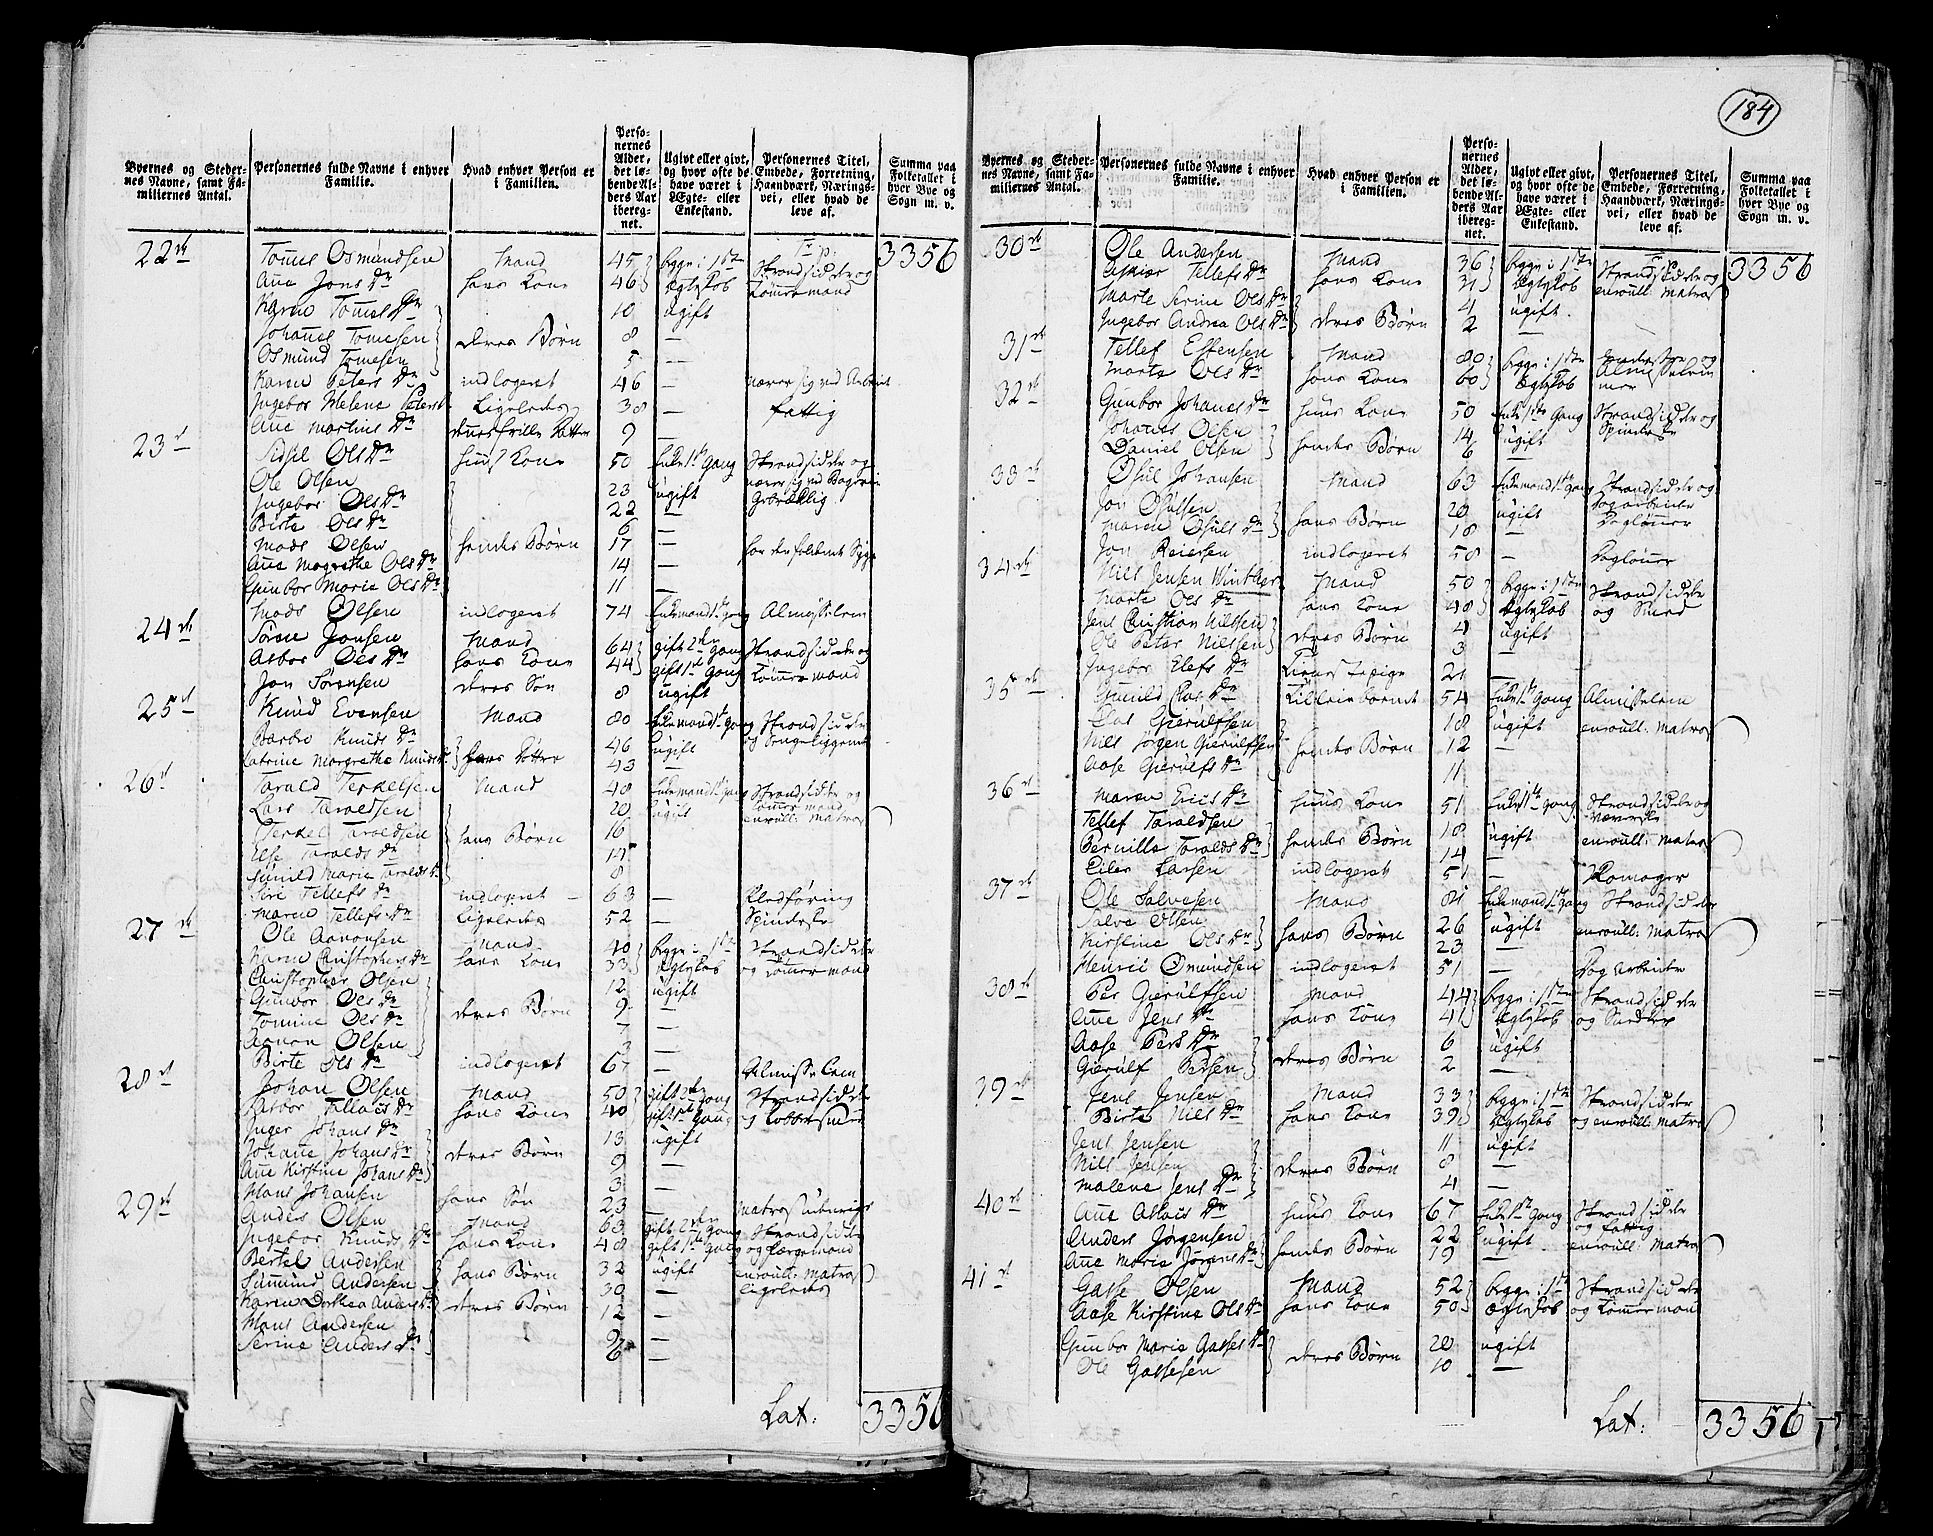 184
Byernes og Steder-
nes Navne, samt Fa-
miliernes Antal.
Personernes fulde Navne i enhver
Familie.
Hvad enhver Person er
i Familien.
Perso-
nernes
Alder,
det lø-
bende Al-
ders Aar
iberegn-
net.
Ugivt eller givt,
og hvor ofte de
have været i
Ægte- eller
Enkestand.
Personernes Titel,
Embede, Forretning,
Haandværk, Nærings-
vei, eller hvad de
leve af.
Summa paa
Folketallet i
hver Bye og
Sogn m. v.
3356
22de Tomes Osmundsen Mand 45 begge i 1ste Strandsidder og
Ane Jons Dr hans Kone 46 Ægteskab Tømmermand
Karen Tomes Dr 10 ugift
Johanes Tomesen deres Børn 8 —
Osmund Tomesen 5 —
Karen Peters Dr indlogeret 46 — nærer sig ved Arbeid
Ingebor Helene Peters Dr Ligeledes 38 — fattig
Ane Martius Dr 9 —
23d Sidsel Ols Dr huus Kone 50 Enke 1ste Gang Strandsidder og
Ole Olsen 23 ugift
Ingebor Ols Dr 22 —
Birte Ols Dr 6 —
Mads Olsen hendes Børn 17 —
Ane Magrethe Ols Dr 14 —
Gunbor Marie Ols Dr 11 —
Mads Olsen indlogeret 74 Enkemand 1ste Gang Almisselem
24de Søren Jonsen Mand 64 gift 2den Gang Strandsidder og
Asbor Ols Dr hans Kone 44 gift 1ste Gang Tømmermand
Jon Sørensen deres Søn 8 ugift
25d Knud Evensen Mand 80 Enkemand 1ste Gang Strandsidder
Barbro Knuds Dr 46 ugift og Sengeliggende
Catrine Margrethe Knuds Dr hans Døttre 43 —
26d Tarald Terkelsen Mand 48 Enkemand 1ste Gang Strandsidder og
Lars Taraldsen 20 ugift Tømmermand enroull: Matros
Terkel Taraldsen hans Børn 16
Else Taralds Dr 14
Gunild Marie Taralds Dr 8
Siri Tellefs Dr indlogeret 63 — Pledføring
Maren Tellefs Dr Ligeledes 52 — Spinderske
27de Ole Aanonsen Mand 40 begge i 1ste Strandsidder
Karen Christophers Dr hans Kone 33 Ægteskab og Tømmermand
Christopher Olsen 12 ugift
Gunbor Ols Dr deres Børn 9 —
Tomine Ols Dr 7 —
Aanon Olsen 3 —
Birte Ols Dr indlogeret 67 — Almisse Lem
28d Johan Olsen Mand 50 gift 2den Gang Strandsidder
Tallaks Dr hans Kone 40 gift 1ste Gang
Inger Johans Dr 13 ugift
Johane Johans Dr deres Børn 9 —
Ane Kirstine Johans Dr 3 —
Hans Johansen hans Søn 23 — Matros udenrigs
29de Anders Olsen Mand 63 gift 2den Gang Strandsidder
Ingebor Knuds Dr hans Kone 48 gift 1ste Gang og Færgemand
Bertel Andersen hans Børn 32 ugift enroull: Matros
Andersen 30 — ligeledes
Karen Dorthea Anders Dr deres Børn 12 —
Hans Andersen 9 —
Serine Anders Dr 6 —
Lat: 3356
Byernes og Steder-
nes Navne, samt Fa-
miliernes Antal.
Personernes fulde Navne i enhver
Familie.
Hvad enhver Person er
i Familien.
Perso-
nernes
Alder,
det lø-
bende Al-
ders Aar
iberegn-
net.
Ugivt eller givt,
og hvor ofte de
have været i
Ægte- eller
Enkestand.
Personernes Titel,
Embede, Forretning,
Haandværk, Nærings-
vei, eller hvad de
leve af.
Summa paa
Folketallet i
hver Bye og
Sogn m. v.
3356
30te Ole Andersen Mand 36 begge i 1ste Strandsidder og
Tellefs Dr hans Kone 31 Ægteskab enroull: Matros
Marte Serine Ols Dr 4 ugift
Ingebor Andrea Ols Dr deres Børn 2 —
31te Tellef Estensen Mand 80 begge i 1ste
Marte Ols Dr hans Kone 60 Ægteskab
32te Gunbor Johanes Dr huus Kone 50 Enke 1ste Gang Strandsidder og
Johanes Olsen 14 ugift Spinderske
Daniel Olsen hendes Børn 6 —
33te Osul Johansen Mand 63 Enkemand 1ste Gang Strandsidder og
Jon Osulsen 20 ugift
Maren Osuls Dr hans Børn 18 —
Jon Reiersen indlogeret 58 — Dagløner
34te Nils Jensen Winther Mand 50 begge i 1ste Strandsidder
Marte Ols Dr hans Kone 48 Ægteskab og Smed
Jens Christian Nilssen 4 ugift
Ole Peter Nilssen deres Børn 3 —
Ingebor Elefs Dr Tieneste Pige 21 —
35te Gunild Dr 54 Enke 1ste Gang Almisselem
Gierulfsen 18 ugift enroull: Matros
Nils Jørgen Gierulfsen hendes Børn 12 —
Aase Gierulfs Dr 11
36te Maren Erics Dr huus Kone 51 Enke 1ste Gang Strandsidder og
Tellef Taraldsen 18 ugift enroull: Matros
Pernille Taralds Dr hendes Børn 14 —
Eiler Larsen indlogeret 51 — Skomager
37te Ole Salvesen Mand 81 Enkemand 1ste Gang Strandsidder
Salve Olsen 26 ugift enroull: Matros
Kirstine Ols Dr hans Børn 23
Henric Omundsen indlogeret 51 — Dag Arbeider
38te Per Gierulfsen Mand 44 begge i 1ste Strandsidder
Ane Jens Dr hans Kone 41 Ægteskab
Aase Pers Dr 6 ugift
Gierulf Persen deres Børn 2 —
39te Jens Jensen Mand 33 begge i 1ste Strandsidder
Birte Nils Dr hans Kone 39 Ægteskab og enroull: Matros
Jens Jensen 11 ugift
Nils Jensen deres Børn 8 —
Malene Jens Dr 4 —
40de Ane Aslacs Dr huus Kone 67 Enke 1ste Gang Strandsidder og fattig
Anders Jørgensen 22 ugift enroull: Matros
Ane Marie Jørgens Dr hendes Børn 19 —
41de Gasse Olsen Mand 52 begge i 1ste Strandsidder
Aase Kirstine Ols Dr hans Kone 50 Ægteskab og Tømmermand
Gunbor Marie Gasses Dr 20 ugift
Ole Gassesen deres Børn 10 —
Lat: 3356